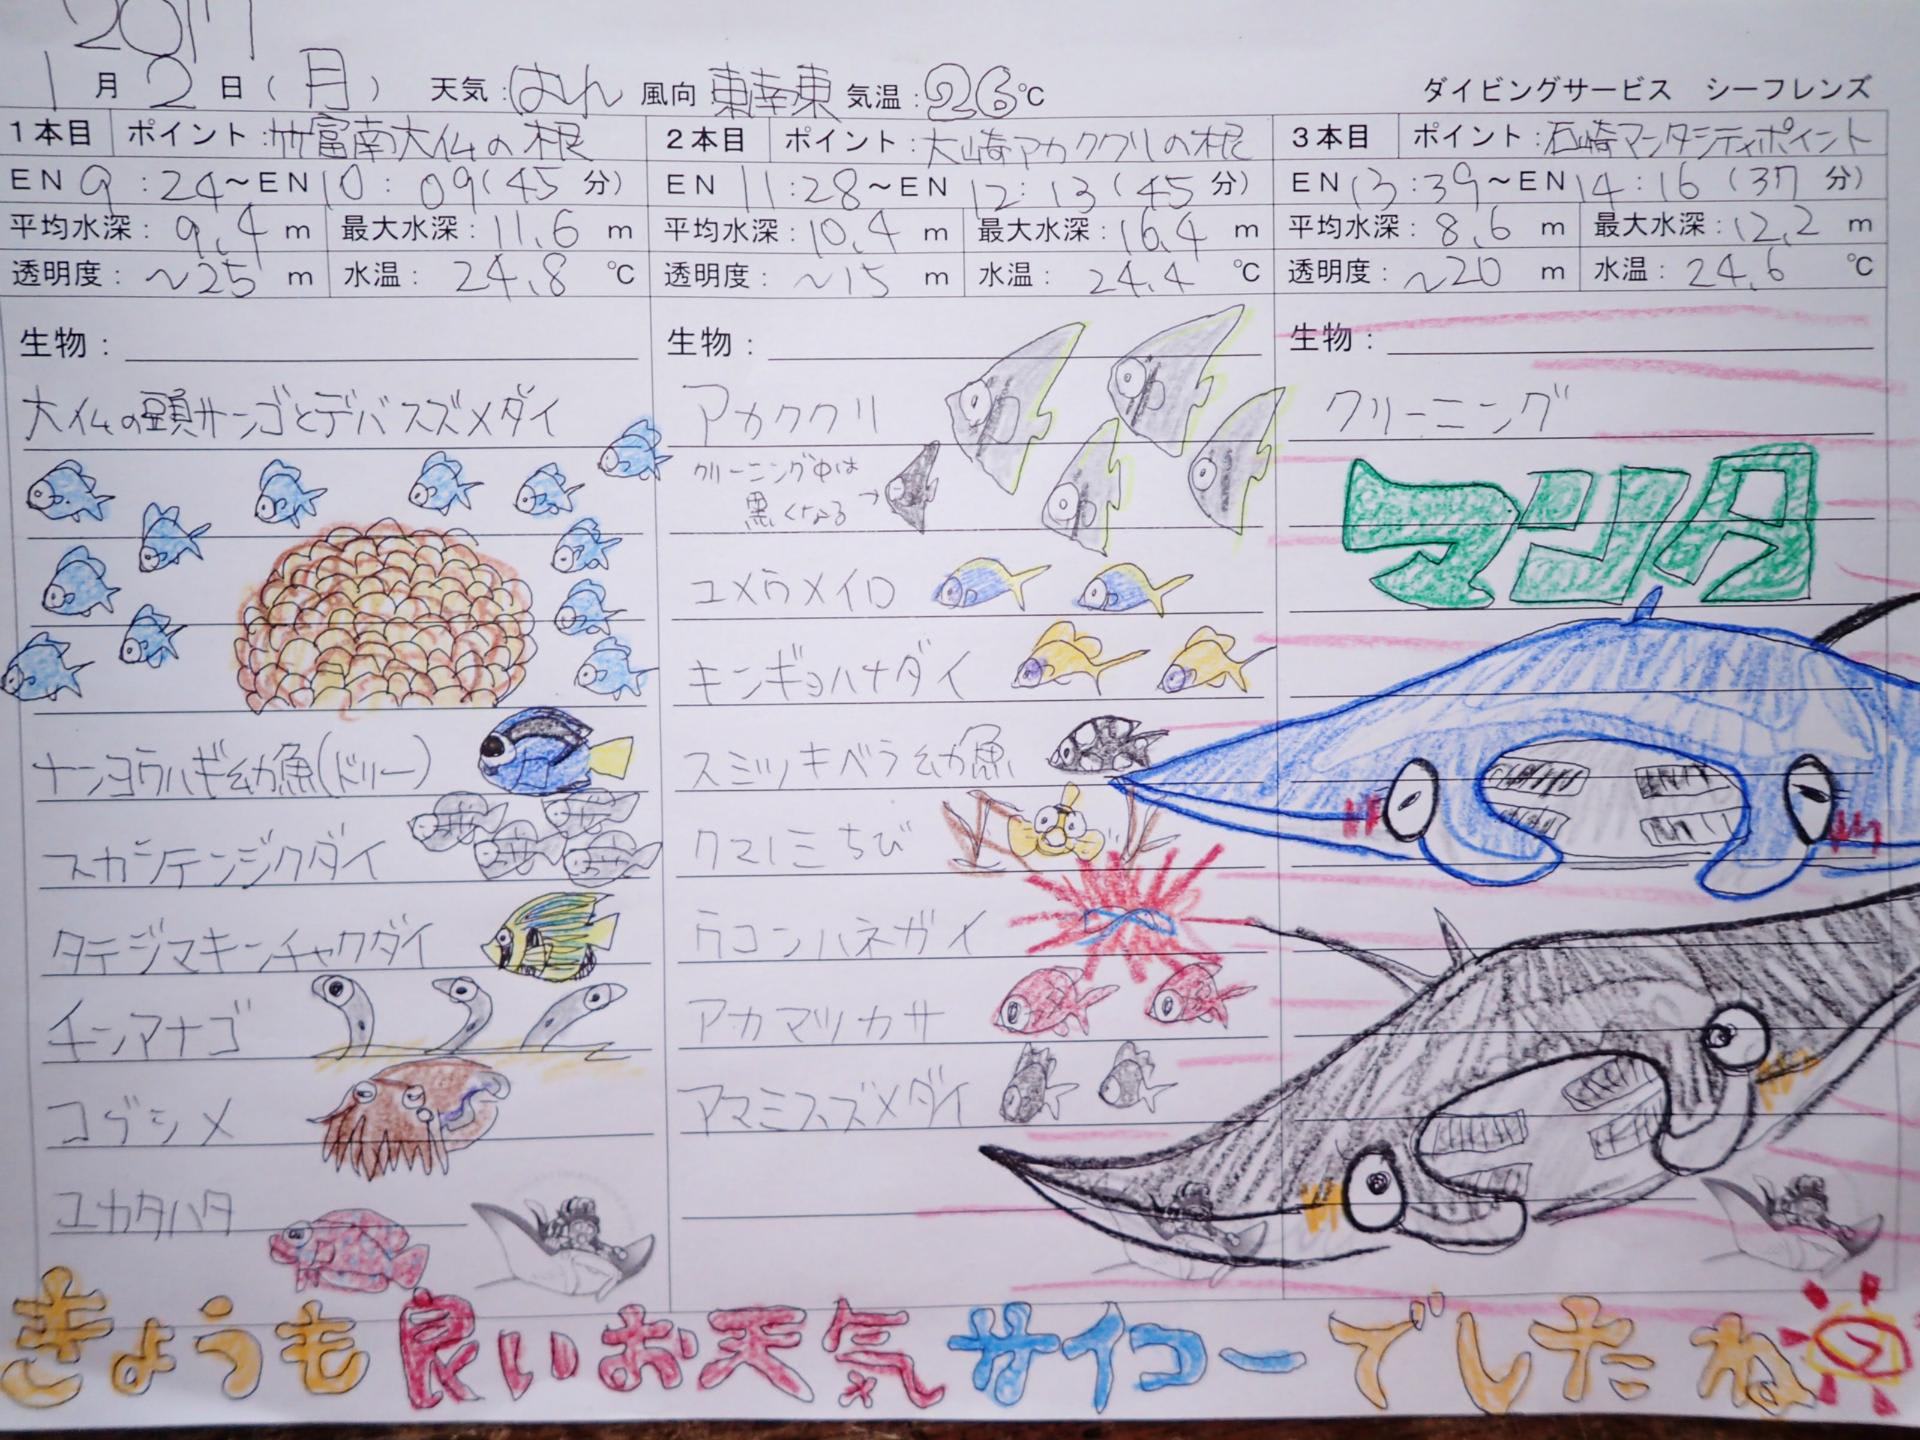 2017
1月2日(月) 天気:はれ 風向 東 東 気温:26℃ ダイビングサービス シーフレンズ
1本目 ポイント:竹富南大仏の根
EN 9:24~EN 10:09(45分)
平均水深:9.4m 最大水深:11.6m
透明度:~25m 水温:24.8℃
生物:
大仏の頭サンゴとデバスズメダイ
ナンヨウハギ幼魚(ドリー)
スカシテンジクダイ
タテジマキンチャクダイ
チンアナゴ
コブシメ
ユカタハタ
2本目 ポイント:大崎アカククリの根
EN 11:28~EN 12:13(45分)
平均水深:10.4m 最大水深:16.4m
透明度:~15m 水温:24.4℃
生物:
アカククリ
クリーニング中は
黒くなる→
ユメウメイロ
キンギョハナダイ
スミツキベラ幼魚
クマノミちび
ウコンハネガイ
アカマツカサ
アマミスズメダイ
3本目 ポイント:石崎マンタシティポイント
EN 13:39~EN 14:16(37分)
平均水深:8.6m 最大水深:12.2m
透明度:~20m 水温:24.6℃
生物:
クリーニング
マンタ
きょうも良いお天気サイコーでしたね